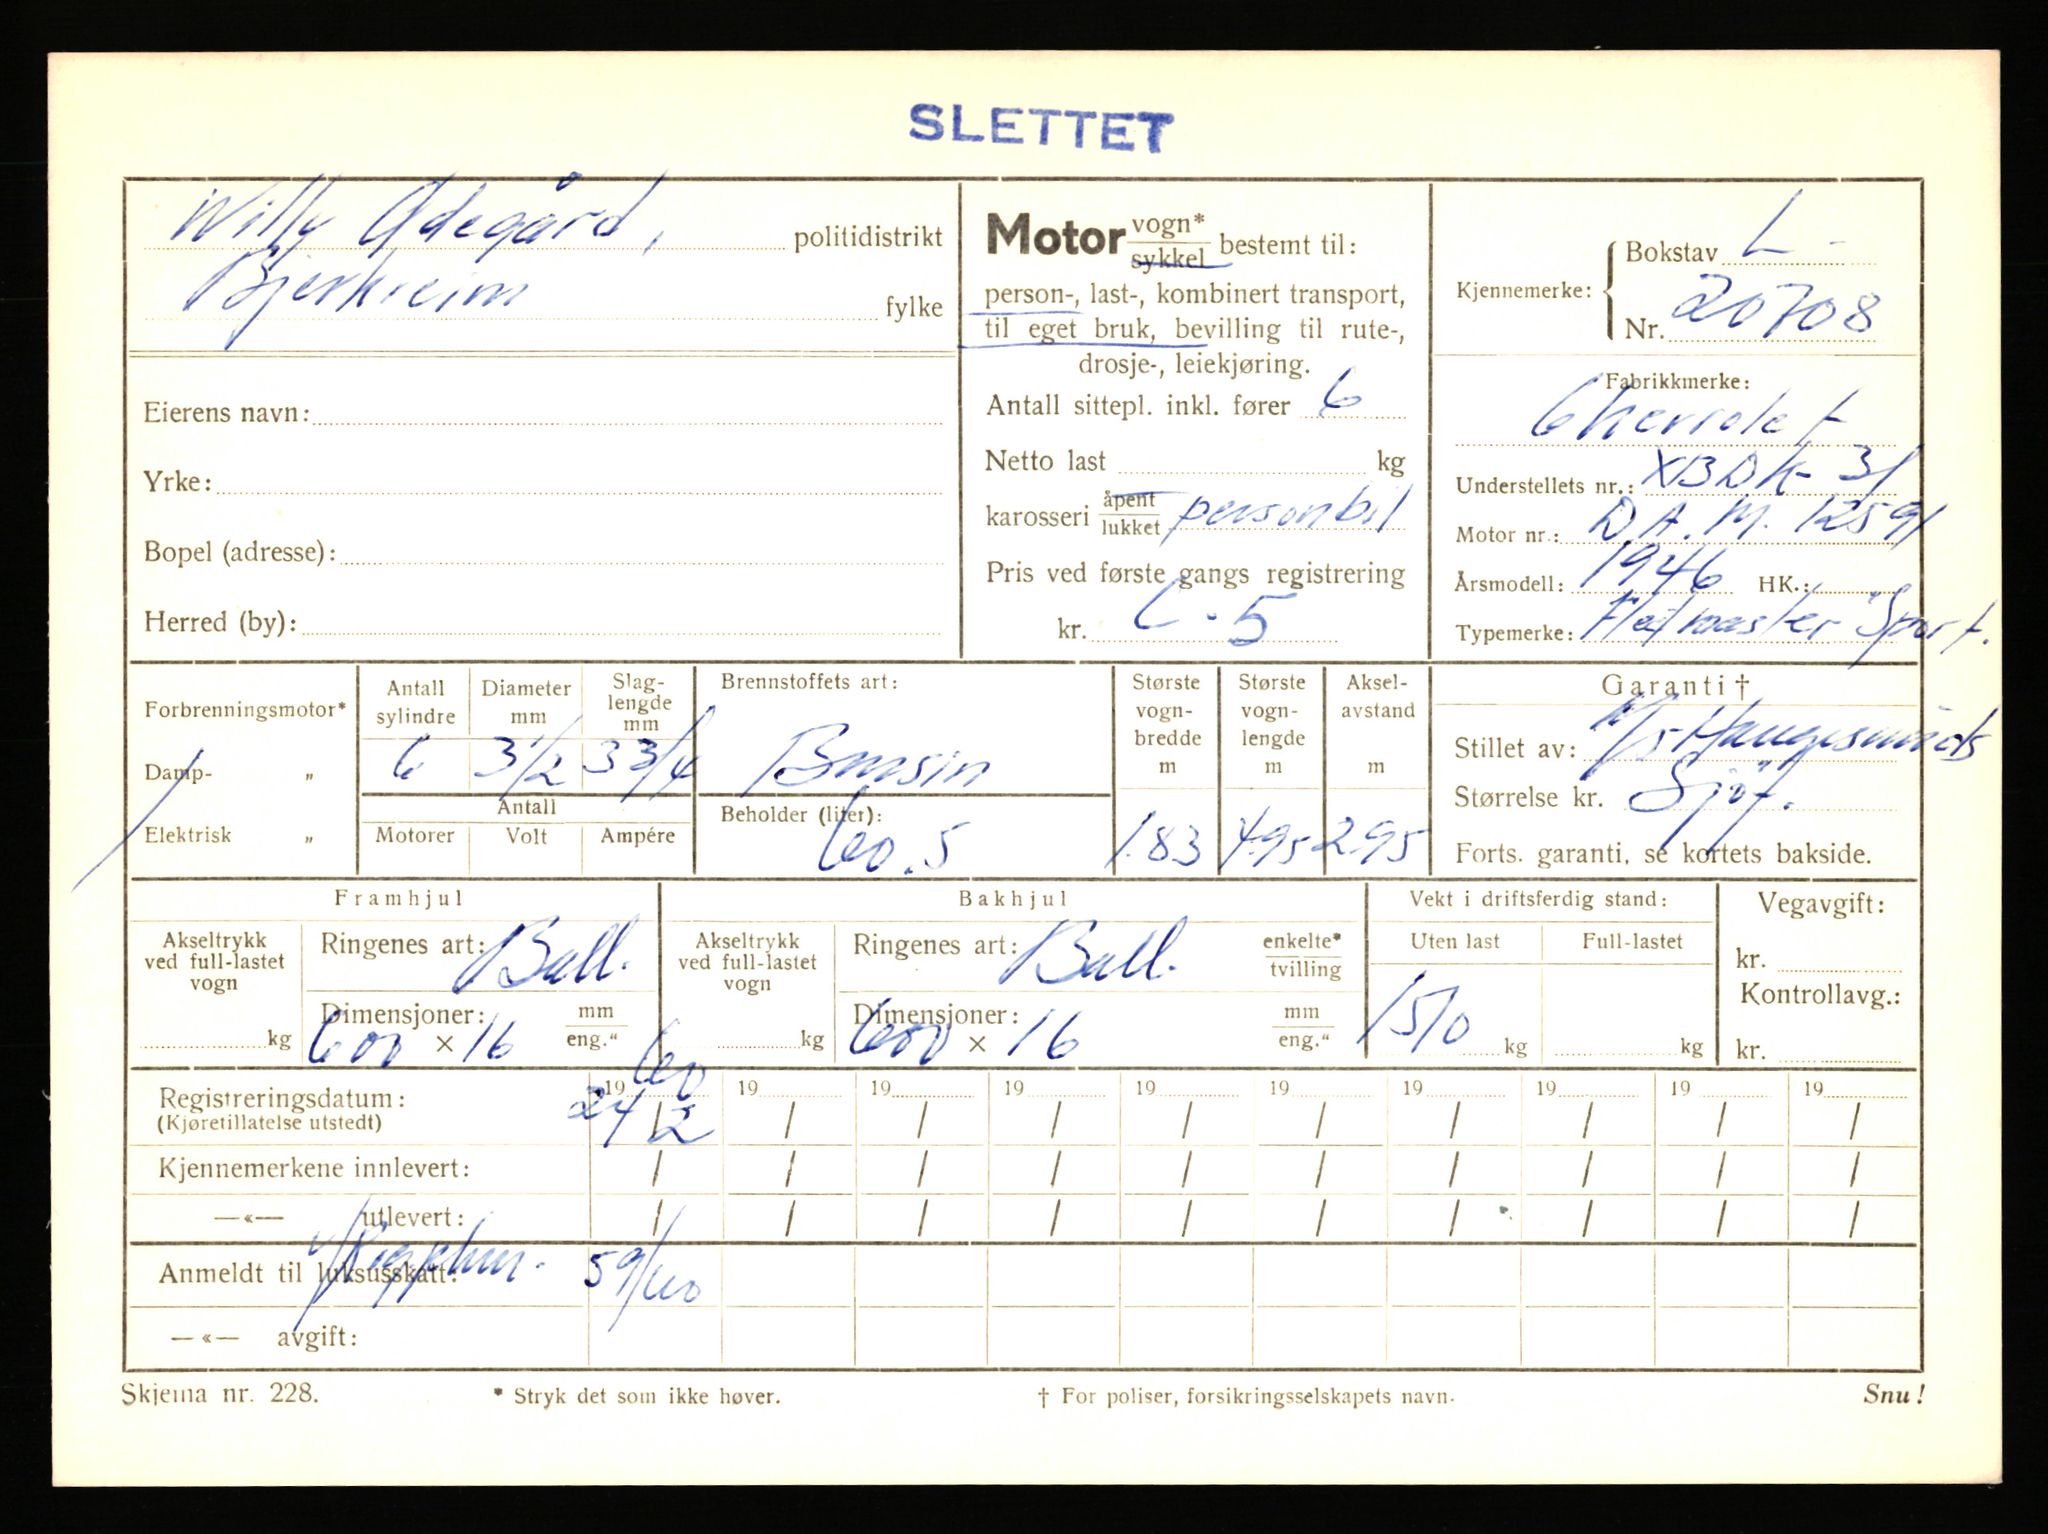 SLETTET
Willy Ødegård, politidistrikt
Bjerkreim fylke
Eierens navn:
Yrke:
Bopel (adresse):
Herred (by):
Motor vogn* sykkel bestemt til:
person-, last-, kombinert transport,
til eget bruk, bevilling til rute-,
drosje-, leiekjøring.
Antall sittepl. inkl. fører 6
Netto last kg
karosseri åpent lukket personbil
Pris ved første gangs registrering
kr. L-5
Kjennemerke: Bokstav L-
Nr. 20708
Fabrikkmerke:
Chevrolet
Understellets nr.: XBDK-31
Motor nr.: D.A.M. 12591
Årsmodell: 1946 HK.:
Typemerke: Fleetmaster "Sport.
Forbrenningsmotor*
Damp- „
Elektrisk „
Antall sylindre Diameter mm Slag-lengde mm
6 3 1/2 3 3/4
Antall
Motorer Volt Ampére
Brennstoffets art:
Bensin
Beholder (liter):
60.5
Største vogn-bredde m
1.83
Største vogn-lengde m
4.95
Aksel-avstand m
295
Garanti †
Stillet av: A/S Haugesunds
Størrelse kr. Sjøf.
Forts. garanti, se kortets bakside.
Framhjul
Akseltrykk ved full-lastet vogn
kg
Ringenes art: Ball.
Dimensjoner: mm
600 × 16 eng."
Bakhjul
Akseltrykk ved full-lastet vogn
kg
Ringenes art: Ball. enkelte* tvilling
Dimensjoner: mm
600 × 16 eng."
Vekt i driftsferdig stand:
Uten last Full-lastet
1510 kg kg
Vegavgift:
kr.
Kontrollavg.:
kr.
1960 19 19 19 19 19 19 19 19 19
Registreringsdatum: 24/2 / / / / / / / / /
(Kjøretillatelse utstedt)
Kjennemerkene innlevert: / / / / / / / / / /
—«— utlevert: / / / / / / / / / /
Anmeldt til luksusskatt: 59/60
—«— avgift:
Skjema nr. 228. * Stryk det som ikke høver. † For poliser, forsikringsselskapets navn. Snu!